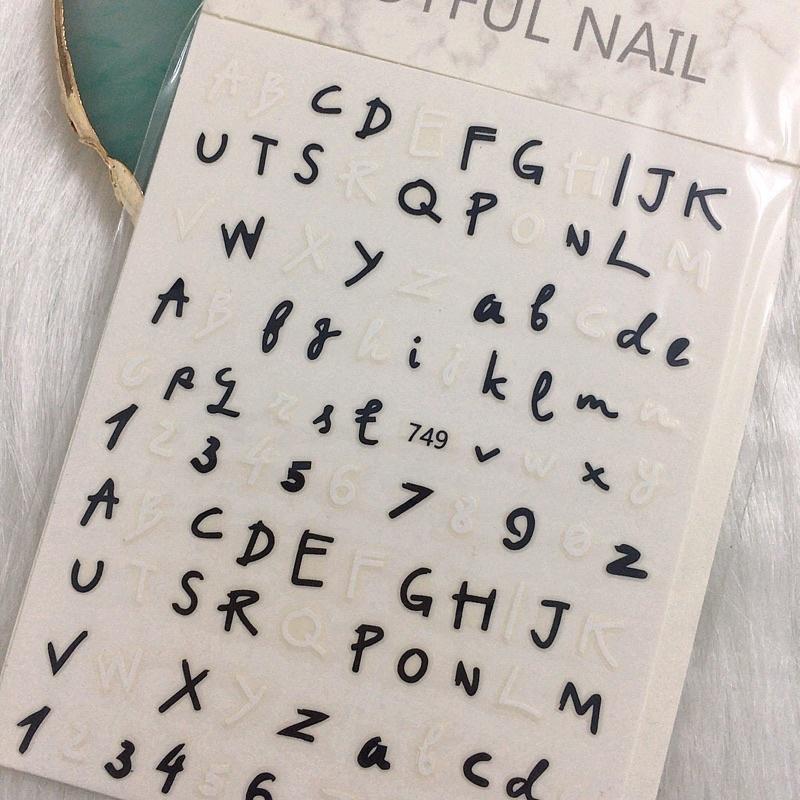 FUL NAIL
A B C D E F G H I J K
U T S R Q P O N L M
V W X Y Z a b c d e
A B f g h i j k l m n
p q r s t 749 v w x y
1 2 3 4 5 6 7 8 9 0 z
A B C D E F G H I J K
U T S R Q P O N L M
V W X Y Z a b c d
1 2 3 4 5 6